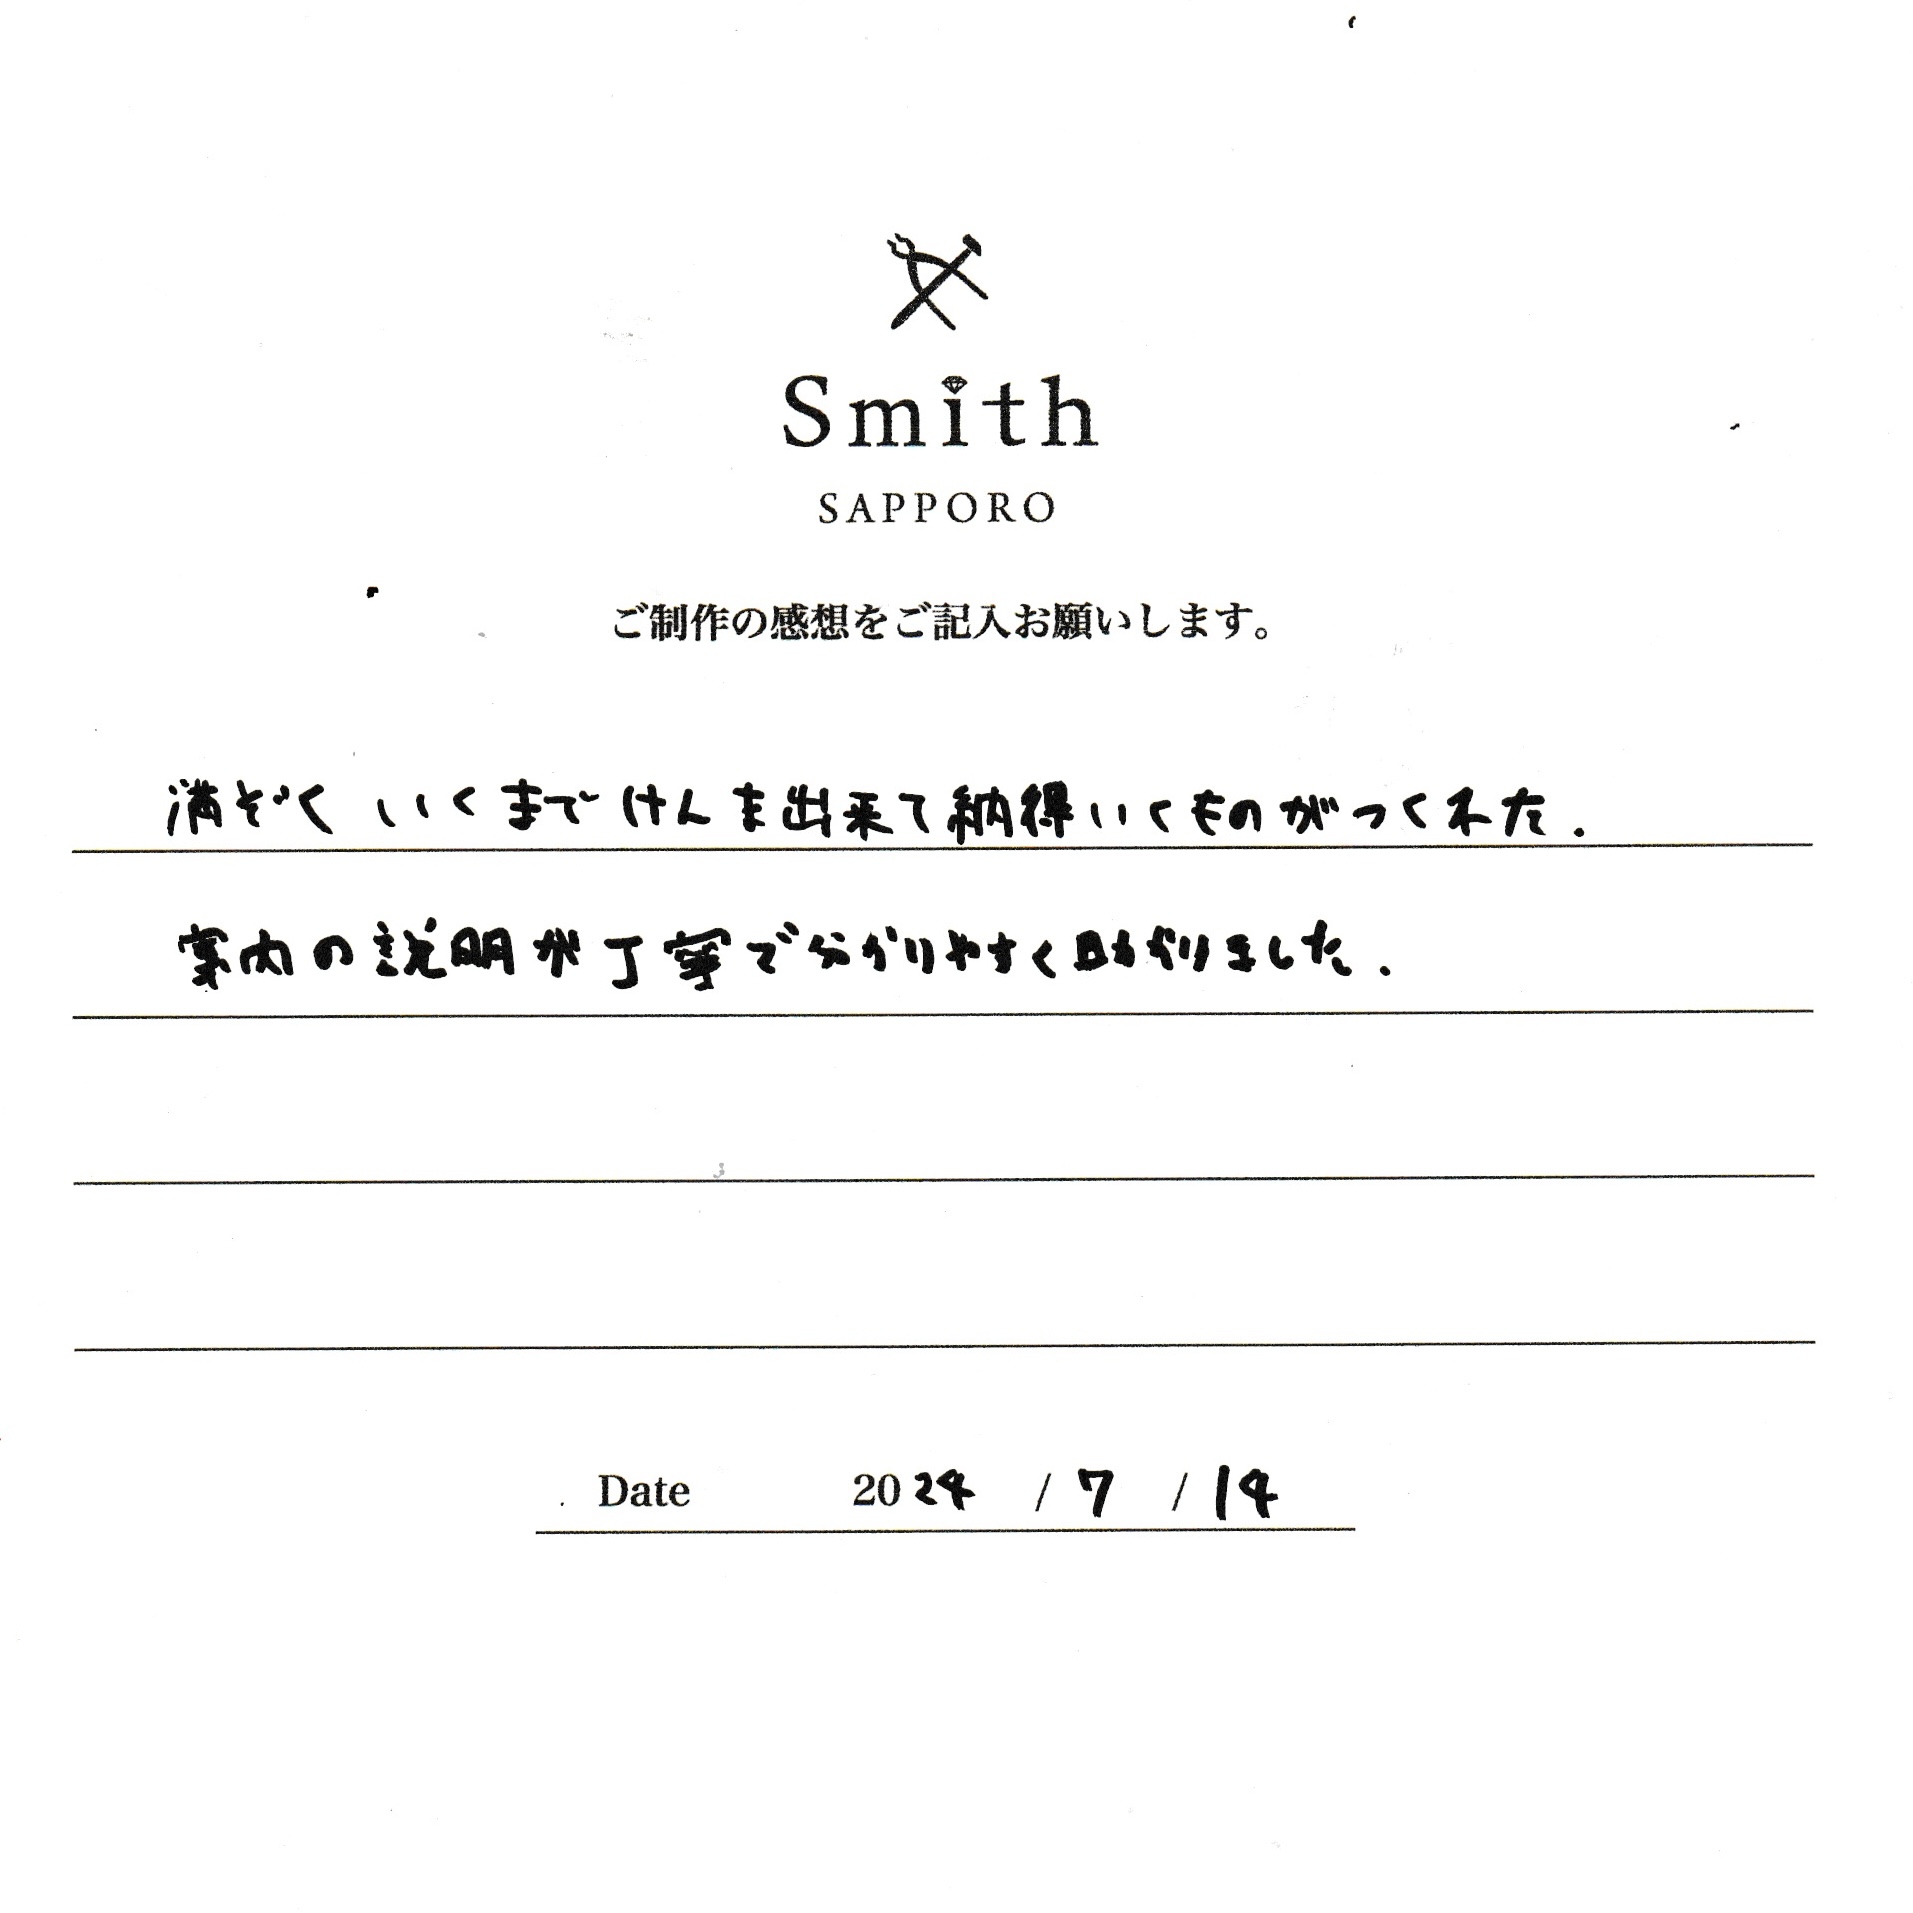 Smith
SAPPORO
ご制作の感想をご記入お願いします。
満ぞく いくまでけんま出来て納得いくものがつくれた.
案内の説明が丁寧で分かりやすく助かりました.
Date 2024 / 7 / 14